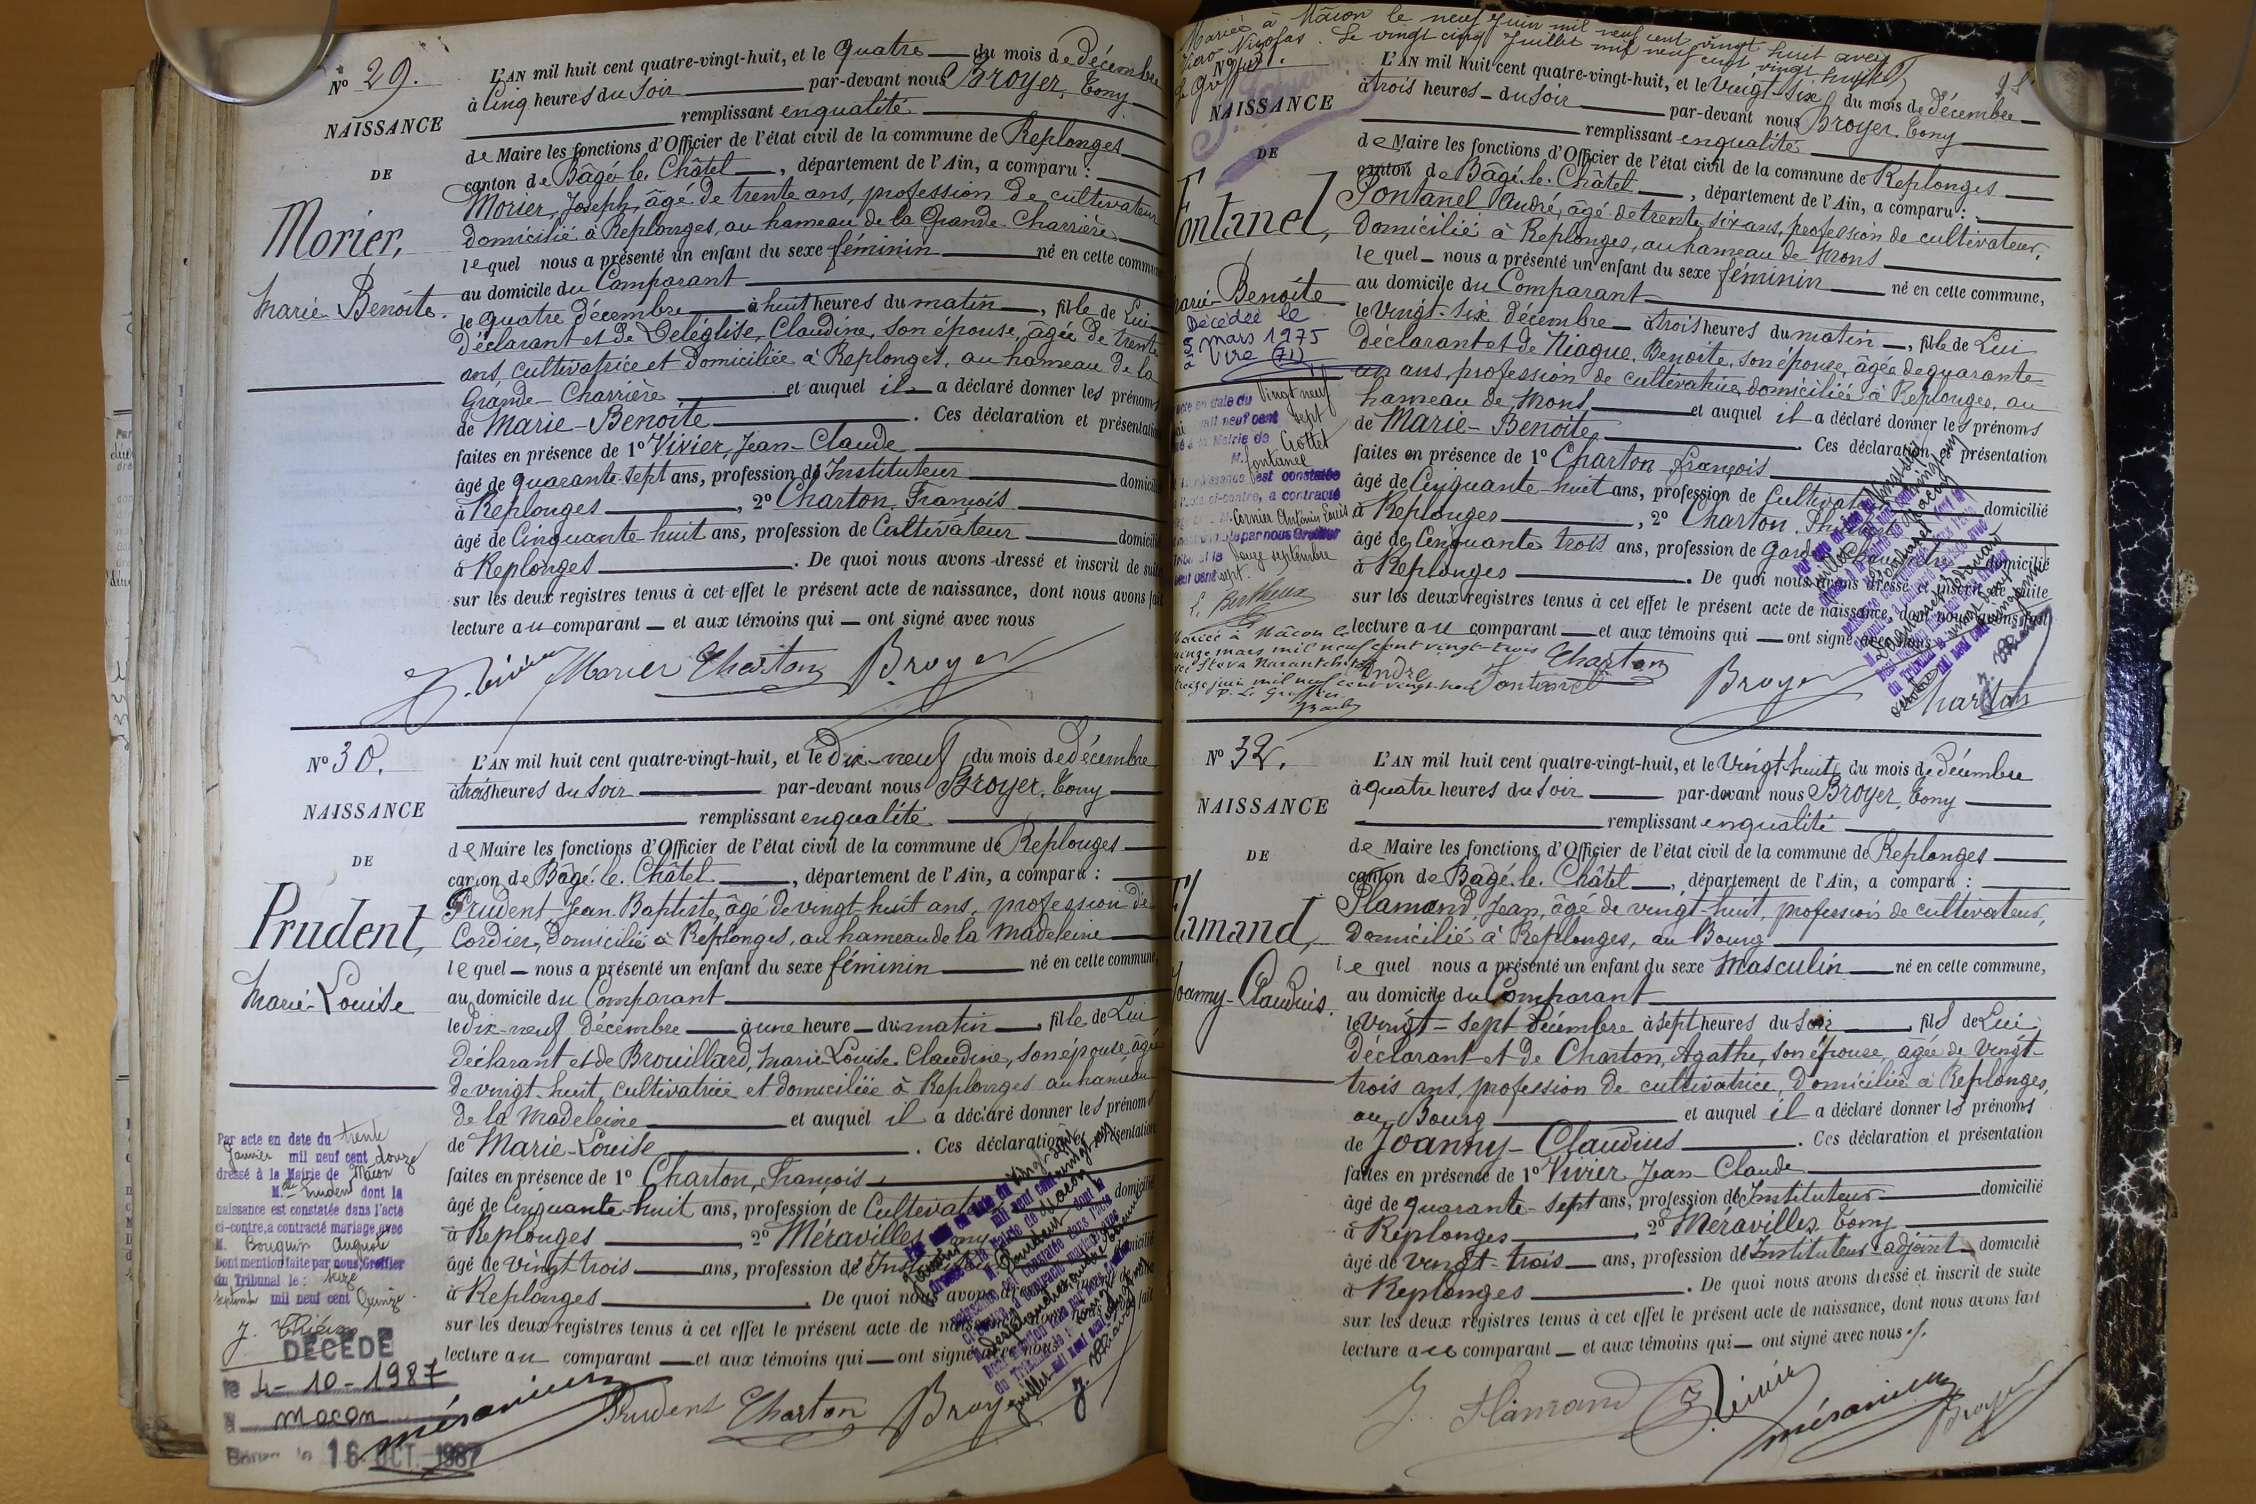 Nº 29.
NAISSANCE
DE
Morier,
Marie Benoîte.
L'AN mil huit cent quatre-vingt-huit, et le quatre du mois de décembre
à cinq heures du soir par-devant nous Broyer, Tony
remplissant en qualité
de Maire les fonctions d'Officier de l'état civil de la commune de Replonges
canton de Bâgé-le-Châtel, département de l'Ain, a comparu :
Morier, Joseph, âgé de trente ans, profession de cultivateur
domicilié à Replonges, au hameau de la Grande Charrière
lequel nous a présenté un enfant du sexe féminin né en cette commune
au domicile du Comparant
le quatre décembre à huit heures du matin, fille de Lui
déclarant et de Deléglise, Claudine, son épouse, âgée de trente
ans, cultivatrice et domiciliée à Replonges, au hameau de la
Grande-Charrière, et auquel il a déclaré donner les prénoms
de Marie-Benoîte. Ces déclaration et présentation
faites en présence de 1º Vivier, Jean-Claude
âgé de quarante-sept ans, profession d'Instituteur domicilié
à Replonges, 2º Charton, François
âgé de cinquante huit ans, profession de Cultivateur domicilié
à Replonges. De quoi nous avons dressé et inscrit de suite
sur les deux registres tenus à cet effet le présent acte de naissance, dont nous avons fait
lecture au comparant et aux témoins qui ont signé avec nous
J. Vivier Morier Charton Broyer
Nº 30.
NAISSANCE
DE
Prudent,
Marie-Louise
L'AN mil huit cent quatre-vingt-huit, et le dix-neuf du mois de décembre
à trois heures du soir par-devant nous Broyer, Tony
remplissant en qualité
de Maire les fonctions d'Officier de l'état civil de la commune de Replonges
canton de Bâgé-le-Châtel, département de l'Ain, a comparu :
Prudent Jean Baptiste, âgé de vingt-huit ans, profession de
Cordier, domicilié à Replonges, au hameau de la Madeleine
lequel nous a présenté un enfant du sexe féminin né en cette commune,
au domicile du Comparant
le dix-neuf décembre à une heure du matin, fille de Lui
déclarant et de Brouillard, Marie Louise Claudine, son épouse, âgée
de vingt-huit, cultivatrice et domiciliée à Replonges au hameau
de la Madeleine et auquel il a déclaré donner les prénoms
de Marie-Louise. Ces déclaration et présentation
faites en présence de 1º Charton, François
âgé de cinquante-huit ans, profession de Cultivateur domicilié
à Replonges 2º Méravilles
âgé de vingt trois ans, profession d' domicilié
à Replonges. De quoi nous avons dressé et inscrit de suite
sur les deux registres tenus à cet effet le présent acte de naissance, dont nous avons fait
lecture au comparant et aux témoins qui ont signé avec nous
Par acte en date du trente
Janvier mil neuf cent douze
dressé à la Mairie de Mâcon
M. Prudent dont la
naissance est constatée dans l'acte
ci-contre, a contracté mariage avec
M. Bouquin Auguste
Dont mention faite par nous, Greffier
du Tribunal le : seize
septembre mil neuf cent Quinze
DÉCÉDÉ
le 4-10-1987
à Macon
le 16 OCT. 1987
Prudent Charton Broyer
Mariée à Mâcon le neuf Juin mil neuf cent vingt huit avec
Nicolas. Le vingt cinq Juillet mil neuf cent vingt huit
NAISSANCE
DE
Fontanel,
Marie-Benoîte
Décédée le
mars 1975
à Viré (71)
L'AN mil huit cent quatre-vingt-huit, et le vingt-six du mois de décembre
à trois heures du soir par-devant nous Broyer, Tony
remplissant en qualité
de Maire les fonctions d'Officier de l'état civil de la commune de Replonges
canton de Bâgé-le-Châtel, département de l'Ain, a comparu :
Fontanel André, âgé de trente six ans, profession de cultivateur,
domicilié à Replonges, au hameau de Mons
lequel nous a présenté un enfant du sexe féminin né en cette commune,
au domicile du Comparant
le vingt-six décembre à trois heures du matin, fille de Lui
déclarant et de Niague, Benoîte, son épouse, âgée de quarante-
un ans, profession de cultivatrice, domiciliée à Replonges, au
hameau de Mons et auquel il a déclaré donner les prénoms
de Marie-Benoîte. Ces déclaration et présentation
faites en présence de 1º Charton François
âgé de cinquante-huit ans, profession de Cultivateur domicilié
à Replonges, 2º Charton
âgé de cinquante trois ans, profession de Garde Champêtre domicilié
à Replonges. De quoi nous avons dressé et inscrit de suite
sur les deux registres tenus à cet effet le présent acte de naissance, dont nous avons fait
lecture au comparant et aux témoins qui ont signé avec nous
acte en date du vingt neuf
mil neuf cent sept
à la Mairie de Crottet
M. Fontanel
naissance est constatée
l'acte ci-contre, a contracté
M. Cornier Antonin Louis
par nous Greffier
septembre
neuf cent sept.
L. Berthoux
Mariée à Mâcon le
mars mil neuf cent vingt-trois
André Fontanel Charton Broyer Charton
Nº 32.
NAISSANCE
DE
Flamand,
Joanny-Claudius.
L'AN mil huit cent quatre-vingt-huit, et le vingt-huit du mois de décembre
à quatre heures du soir par-devant nous Broyer, Tony
remplissant en qualité
de Maire les fonctions d'Officier de l'état civil de la commune de Replonges
canton de Bâgé-le-Châtel, département de l'Ain, a comparu :
Flamand, Jean, âgé de vingt-huit, profession de cultivateur,
domicilié à Replonges, au Bourg
lequel nous a présenté un enfant du sexe Masculin né en cette commune,
au domicile du Comparant
le vingt-sept décembre à sept heures du soir, fils de Lui
déclarant et de Charton, Agathe, son épouse, âgée de vingt-
trois ans, profession de cultivatrice, domiciliée à Replonges,
au Bourg et auquel il a déclaré donner les prénoms
de Joanny-Claudius. Ces déclaration et présentation
faites en présence de 1º Vivier, Jean-Claude
âgé de quarante-sept ans, profession d'Instituteur domicilié
à Replonges, 2º Méravilles, Tony
âgé de vingt-trois ans, profession d'Instituteur adjoint domicilié
à Replonges. De quoi nous avons dressé et inscrit de suite
sur les deux registres tenus à cet effet le présent acte de naissance, dont nous avons fait
lecture au comparant et aux témoins qui ont signé avec nous.
J. Flamand J. Vivier Broyer